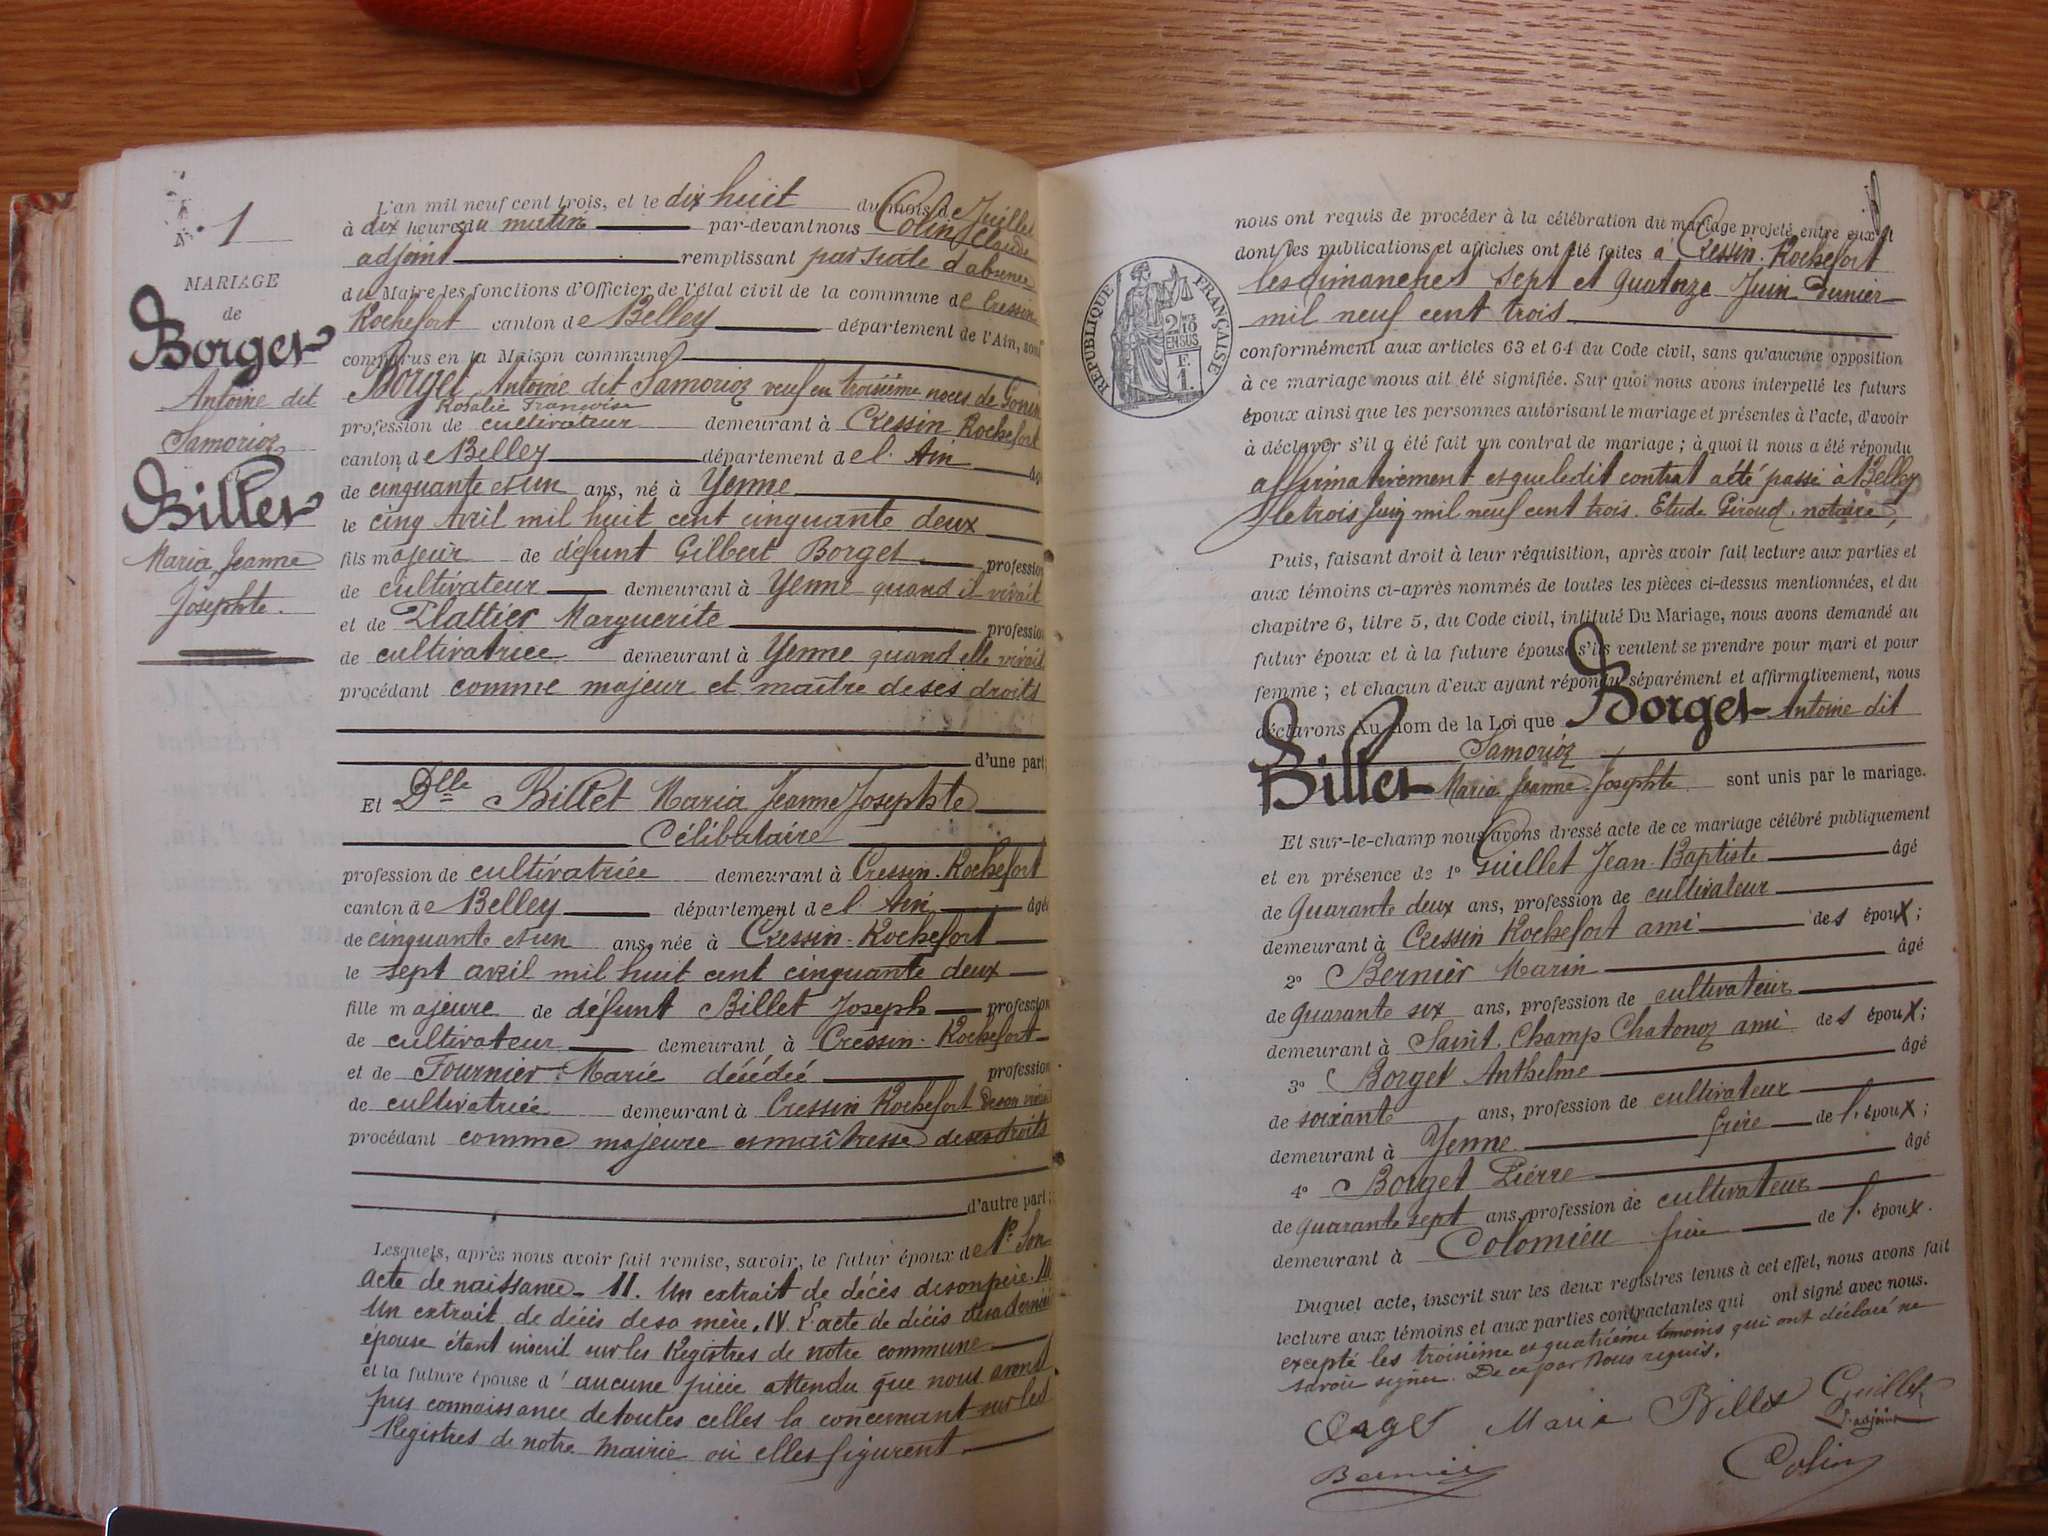 N° 1
MARIAGE
de
Borget
Antoine dit
Samorioz
et
Billet
Maria Jeanne
Josephte.
L'an mil neuf cent trois, et le dix huit du mois de Juillet
à dix heures du matin par-devant nous Colin Claude
adjoint remplissant par suite d'absence
du Maire les fonctions d'Officier de l'état civil de la commune de Cressin
Rochefort canton de Belley département de l'Ain, sont
comparus en la Maison commune
Borget Antoine dit Samorioz veuf en troisième noces de Gonin
Rosalie Françoise
profession de cultivateur demeurant à Cressin Rochefort
canton de Belley département de l'Ain âgé
de cinquante et un ans, né à Yenne
le cinq Avril mil huit cent cinquante deux
fils majeur de défunt Gilbert Borget profession
de cultivateur demeurant à Yenne quand il vivait
et de Plattier Marguerite profession
de cultivatrice demeurant à Yenne quand elle vivait
procédant comme majeur et maître de ses droits
d'une part;
Et Dlle Billet Maria Jeanne Josephte
Célibataire
profession de cultivatrice demeurant à Cressin-Rochefort
canton de Belley département de l'Ain âgée
de cinquante et un ans, née à Cressin-Rochefort
le sept avril mil huit cent cinquante deux
fille majeure de défunt Billet Joseph profession
de cultivateur demeurant à Cressin-Rochefort
et de Fournier Marie décédée profession
de cultivatrice demeurant à Cressin Rochefort de son vivant
procédant comme majeure et maîtresse de ses droits
d'autre part;
Lesquels, après nous avoir fait remise, savoir, le futur époux de 1° Son
acte de naissance. II. Un extrait de décès de son père. III
Un extrait de décès de sa mère. IV. L'acte de décès de sa dernière
épouse étant inscrit sur les Registres de notre commune
et la future épouse d'aucune pièce attendu que nous avons
pris connaissance de toutes celles la concernant sur les
Registres de notre mairie où elles figurent.
nous ont requis de procéder à la célébration du mariage projeté entre eux et
dont les publications et affiches ont été faites à Cressin-Rochefort
les dimanches sept et quatorze Juin dernier
mil neuf cent trois
RÉPUBLIQUE FRANÇAISE
2/10 EN SUS
conformément aux articles 63 et 64 du Code civil, sans qu'aucune opposition
à ce mariage nous ait été signifiée. Sur quoi nous avons interpellé les futurs
époux ainsi que les personnes autorisant le mariage et présentes à l'acte, d'avoir
à déclarer s'il a été fait un contrat de mariage; à quoi il nous a été répondu
affirmativement et que ledit contrat a été passé à Belley
le trois Juin mil neuf cent trois. Etude Giroud, notaire,
Puis, faisant droit à leur réquisition, après avoir fait lecture aux parties et
aux témoins ci-après nommés de toutes les pièces ci-dessus mentionnées, et du
chapitre 6, titre 5, du Code civil, intitulé Du Mariage, nous avons demandé au
futur époux et à la future épouse s'ils veulent se prendre pour mari et pour
femme; et chacun d'eux ayant répondu séparément et affirmativement, nous
déclarons Au nom de la Loi que Borget Antoine dit
Samorioz
Billet Maria Jeanne Josephte sont unis par le mariage.
Et sur-le-champ nous avons dressé acte de ce mariage célébré publiquement
et en présence de 1° Guillet Jean-Baptiste âgé
de quarante deux ans, profession de cultivateur
demeurant à Cressin Rochefort ami des époux;
2° Bernier Marin âgé
de quarante six ans, profession de cultivateur
demeurant à Saint-Champ Chatonoz ami des époux;
3° Borget Anthelme âgé
de soixante ans, profession de cultivateur
demeurant à Yenne frère de l'époux;
4° Borget Pierre âgé
de quarante sept ans, profession de cultivateur
demeurant à Colomieu frère de l'époux.
Duquel acte, inscrit sur les deux registres tenus à cet effet, nous avons fait
lecture aux témoins et aux parties contractantes qui ont signé avec nous.
excepté les troisième et quatrième témoins qui ont déclaré ne
savoir signer. De ce par Nous requis.
Maria Billet Guillet
L'adjoint
Bernier Colin